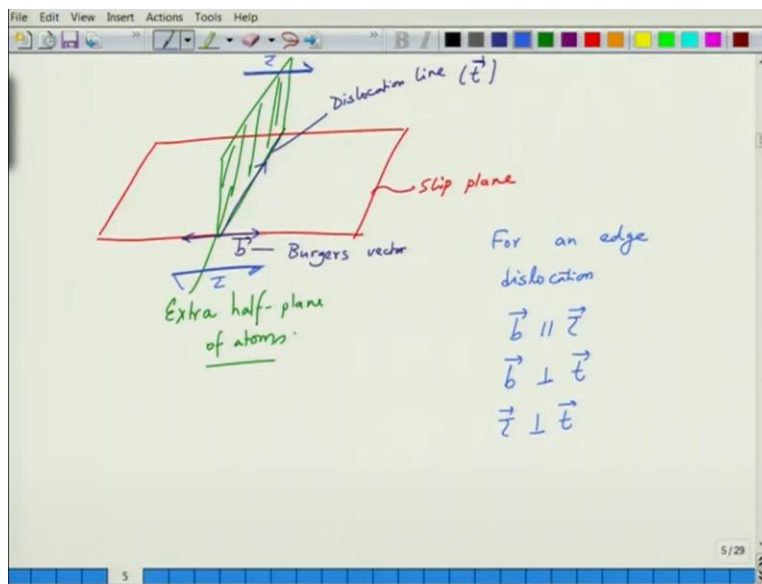 File Edit View Insert Actions Tools Help
τ
Dislocation line (t⃗)
Slip plane
b⃗ — Burgers vector
τ
Extra half-plane
of atoms.
For an edge
dislocation
b⃗ || τ⃗
b⃗ ⊥ t⃗
τ⃗ ⊥ t⃗
5/29
5